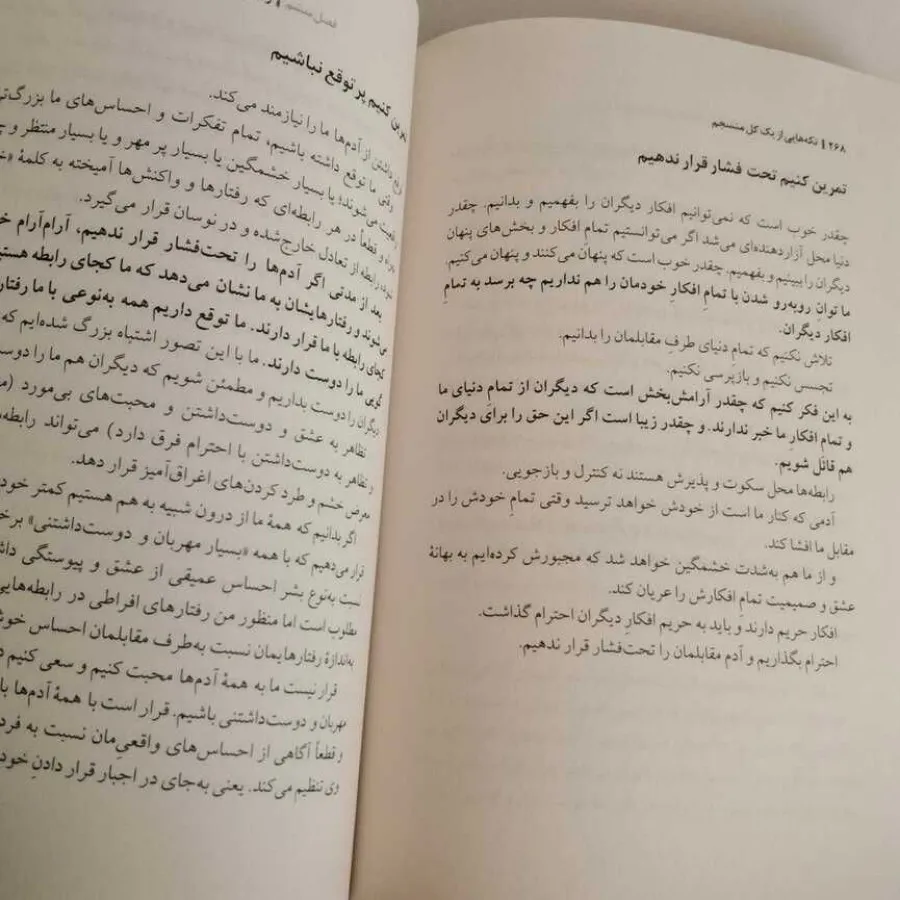 ۲۶۸ | تکه‌هایی از یک کل منسجم
تمرین کنیم تحت فشار قرار ندهیم
چقدر خوب است که نمی‌توانیم افکار دیگران را بفهمیم و بدانیم. چقدر
دنیا محل آزاردهنده‌ای می‌شد اگر می‌توانستیم تمام افکار و بخش‌های پنهان
دیگران را ببینیم و بفهمیم. چقدر خوب است که پنهان می‌کنند و پنهان می‌کنیم.
ما توانِ روبه‌رو شدن با تمامِ افکارِ خودمان را هم نداریم چه برسد به تمامِ
افکار دیگران.
تلاش نکنیم که تمامِ دنیای طرفِ مقابلمان را بدانیم.
تجسس نکنیم و بازپرسی نکنیم.
به این فکر کنیم که چقدر آرامش‌بخش است که دیگران از تمامِ دنیای ما
و تمام افکارِ ما خبر ندارند. و چقدر زیبا است اگر این حق را برای دیگران
هم قائل شویم.
رابطه‌ها محل سکوت و پذیرش هستند نه کنترل و بازجویی.
آدمی که کنار ما است از خودش خواهد ترسید وقتی تمامِ خودش را در
مقابل ما افشا کند.
و از ما هم به‌شدت خشمگین خواهد شد که مجبورش کرده‌ایم به بهانهٔ
عشق و صمیمیت تمام افکارش را عریان کند.
افکار حریم دارند و باید به حریم افکارِ دیگران احترام گذاشت.
احترام بگذاریم و آدم مقابلمان را تحت‌فشار قرار ندهیم.
فصل
تمرین کنیم پر توقع نباشیم
داشتن از آدم‌ها ما را نیازمند می‌کند.
وقتی ما توقع داشته باشیم، تمام تفکرات و احساس‌های ما بزرگ‌تر
می‌شوند؛ یا بسیار خشمگین یا بسیار پر مهر و یا بسیار منتظر و
و قطعاً در هر رابطه‌ای که رفتارها و واکنش‌ها آمیخته به کلمهٔ
رابطه از تعادل خارج‌شده و در نوسان قرار می‌گیرد.
بعد از مدتی اگر آدم‌ها را تحت‌فشار قرار ندهیم، آرام‌آرام
می‌شوند و رفتارهایشان به ما نشان می‌دهد که ما کجای رابطه
کجای رابطه با ما قرار دارند. ما توقع داریم همه به‌نوعی با ما
گویی ما را دوست دارند. ما با این تصور اشتباه بزرگ شده‌ایم که
دیگران را دوست بداریم و مطمئن شویم که دیگران هم ما را
تظاهر به عشق و دوست‌داشتن و محبت‌های بی‌مورد
و تظاهر به دوست‌داشتن با احترام فرق دارد) می‌تواند
معرض خشم و طرد کردن‌های اغراق‌آمیز قرار دهد.
اگر بدانیم که همهٔ ما از درون شبیه به هم هستیم کمتر
قرار می‌دهیم که با همه «بسیار مهربان و دوست‌داشتنی»
نسبت به‌نوع بشر احساس عمیقی از عشق و پیوستگی
مطلوب است اما منظور من رفتارهای افراطی در رابطه‌هایی
به‌اندازهٔ رفتارهایمان نسبت به‌طرف مقابلمان احساس
قرار نیست ما به همهٔ آدم‌ها محبت کنیم و سعی کنیم
مهربان و دوست‌داشتنی باشیم. قرار است با همهٔ آدم‌ها
و قطعاً آگاهی از احساس‌های واقعیِ‌مان نسبت به
وی تنظیم می‌کند. یعنی به‌جای در اجبار قرار دادنِ